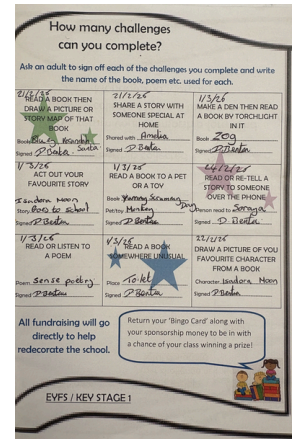 How many challenges
can you complete?
Ask an adult to sign off each of the challenges you complete and write
the name of the book, poem etc. used for each.
21/2/26
READ A BOOK THEN
DRAW A PICTURE OR
STORY MAP OF THAT
BOOK
Book
Signed
21/2/26
SHARE A STORY WITH
SOMEONE SPECIAL AT
HOME
Shared with Amelia
Signed
1/3/26
MAKE A DEN THEN READ
A BOOK BY TORCHLIGHT
IN IT
Book Zog
Signed
1/3/26
ACT OUT YOUR
FAVOURITE STORY
Isadora Moon
Story goes to school
Signed
1/3/26
READ A BOOK TO A PET
OR A TOY
Book
Pet/toy
Signed
READ OR RE-TELL A
STORY TO SOMEONE
OVER THE PHONE
Person read to
Signed
1/3/26
READ OR LISTEN TO
A POEM
Poem Sense poetry
Signed
1/3/26
READ A BOOK
SOMEWHERE UNUSUAL
Place Toilet
Signed
22/2/26
DRAW A PICTURE OF YOU
FAVOURITE CHARACTER
FROM A BOOK
Character Isadora Moon
Signed
All fundraising will go
directly to help
redecorate the school.
Return your 'Bingo Card' along with
your sponsorship money to be in with
a chance of your class winning a prize!
EYFS / KEY STAGE 1